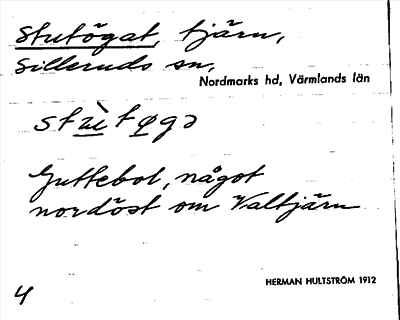 Stutögat, tjärn,
Silleruds sn,
Nordmarks hd, Värmlands län
Guttebol, något
nordöst om Valtjärn
HERMAN HULTSTRÖM 1912
4